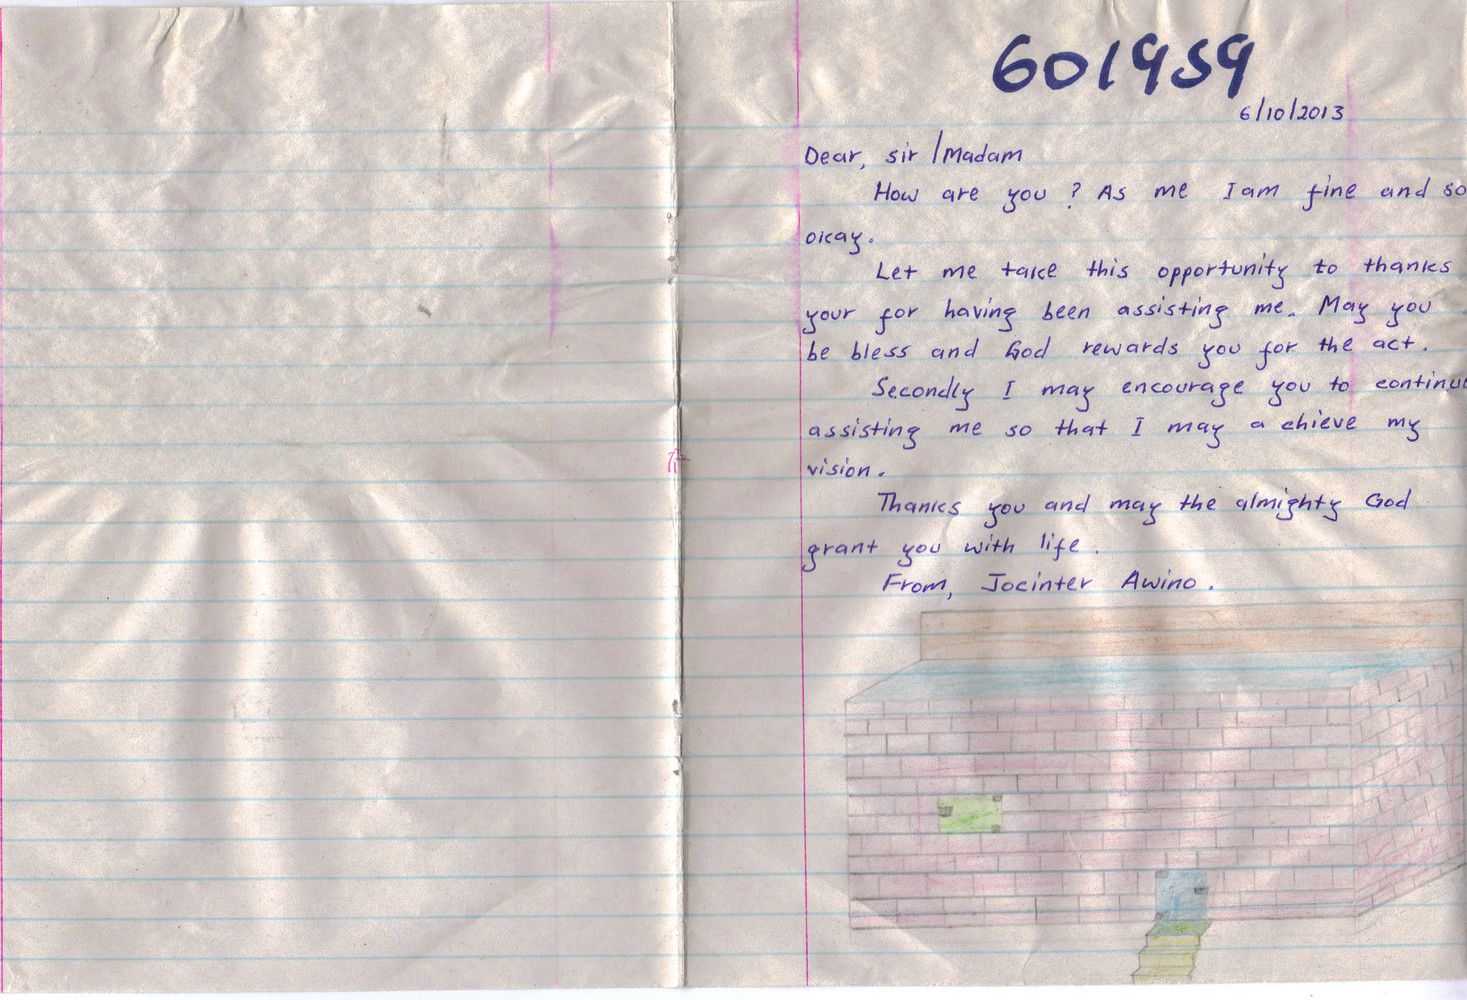 601959
6/10/2013
Dear, sir /Madam
How are you ? As me I am fine and so
okay.
Let me take this opportunity to thanks
your for having been assisting me. May you
be bless and God rewards you for the act.
Secondly I may encourage you to continu
assisting me so that I may a chieve my
vision.
Thanks you and may the almighty God
grant you with life.
From, Jocinter Awino.